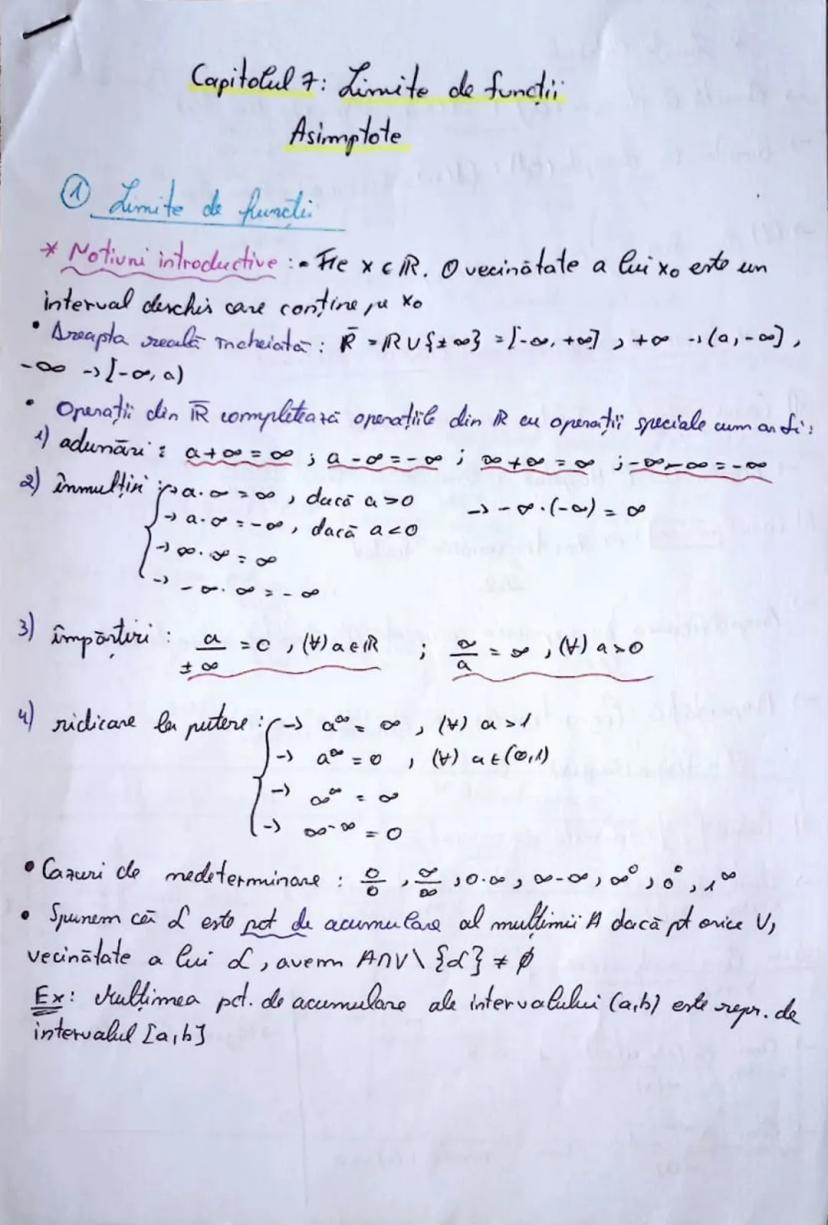 Capitolul 7: Limite de funcții
Asimptote
① Limite de funcții
* Noțiuni introductive: • Fie x ∈ ℝ. O vecinătate a lui x₀ este un
interval deschis care conține pe x₀
• Dreapta reală încheiată: ℝ̄ = ℝ ∪ {±∞} = [-∞, +∞], +∞ → (a, -∞],
-∞ → [-∞, a)
• Operații din ℝ̄ completează operațiile din ℝ cu operații speciale cum ar fi:
1) adunări: a+∞ = ∞ ; a-∞ = -∞ ; ∞+∞ = ∞ ; -∞-∞ = -∞
2) înmulțiri: → a·∞ = ∞, dacă a>0 → -∞·(-∞) = ∞
→ a·∞ = -∞, dacă a<0
→ ∞·∞ = ∞
→ -∞·∞ = -∞
3) împărțiri: a/±∞ = 0, (∀) a∈ℝ ; ∞/a = ∞, (∀) a>0
4) ridicare la putere: → a^∞ = ∞, (∀) a>1
→ a^∞ = 0, (∀) a∈(0,1)
→ ∞^∞ = ∞
→ ∞^-∞ = 0
• Cazuri de nedeterminare: 0/0, ∞/∞, 0·∞, ∞-∞, ∞⁰, 0⁰, 1^∞
• Spunem că α este pct de acumulare al mulțimii A dacă pt orice V,
vecinătate a lui α, avem A∩V\{α} ≠ ∅
Ex: Mulțimea pct. de acumulare ale intervalului (a,b) este repr. de
intervalul [a,b]